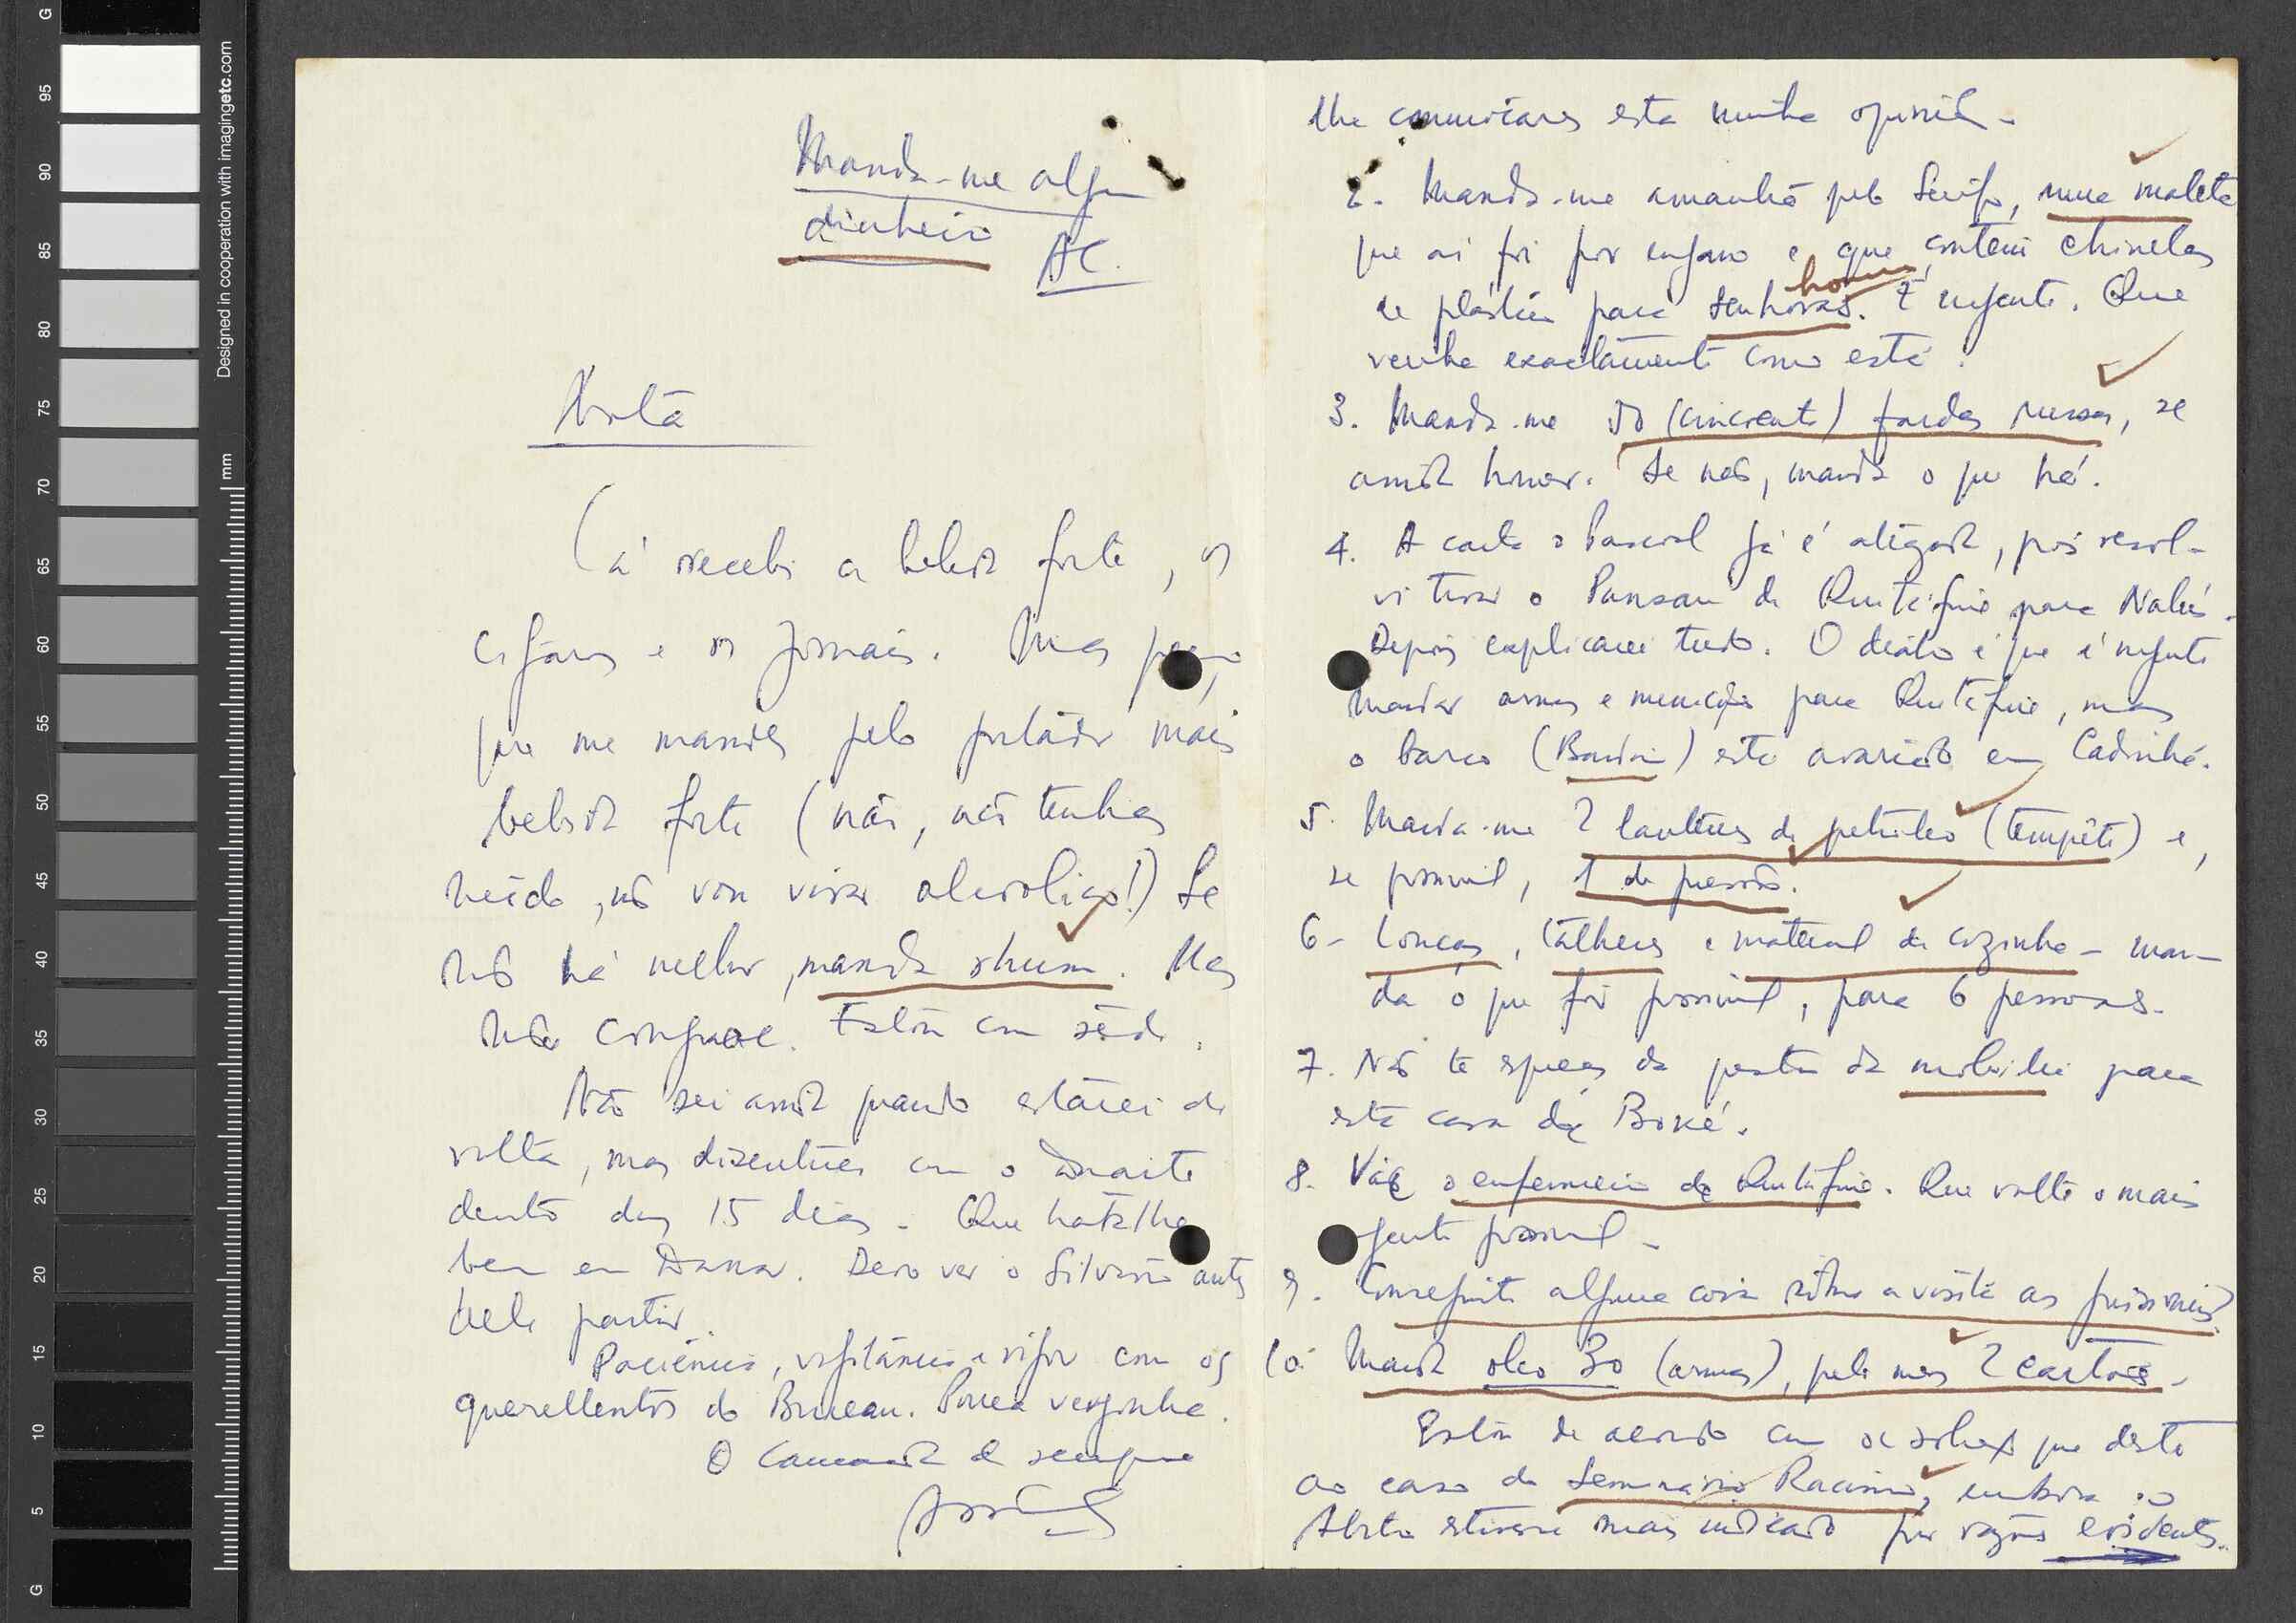 Manda-me algum
dinheiro
AC.
Nota
Cá recebi a bebida forte, os
cigarros e os jornais. Mas peço
que me mandes pelo portador mais
bebida forte (não, não tenhas
medo, não vou virar alcoólico!) Se
não há melhor, manda rhum. Mas
não cognac. Estou com sêde.
Não sei ainda quando estarei de
volta, mas discutirei com o
dentro dos 15 dias. Que
bem em Dakar. Devo ver o Silvino antes
dele partir
Paciência, vigilância e vigor com os
querellentos do Bureau. Pouca vergonha.
O Camarada de sempre
lhe comunicares esta minha opinião.
2. Manda-me amanhã pelo Serifo, uma maleta
que aí foi por engano e que contem chinelas
de plástico para senhoras. É urgente. Que
homem
venha exactamente como está.
3. Manda-me 50 (cincoenta) fardas russas, se
ainda houver. Se não, manda o que há.
4. A carta o Pascoal já é atrigada, pois resol-
vi tirar o Pansau de Quitafine para Nalús.
Depois explicarei tudo. O diabo é que é urgente
mandar armas e munições para Quitafine, mas
o barco (Bandim) está avariado em Cadinhé.
5. Manda-me 2 lanternas de petróleo (tempête) e,
se possivel, 1 de pressão.
6- Louças, talheres e material de cozinha - man-
da o que fôr possivel, para 6 pessoas.
7. Não te esqueças da questão da mobília para
esta casa de Boké.
8. Vai o enfermeiro de Quitafine. Que volte o mais
urgente possivel.
9. Conseguiste alguma coisa sôbre a visita aos prisioneiros?
10. Manda oleo 30 (armas), pelo menos 2 cartões.
Estou de acordo com a solução que deste
ao caso do Seminário Racismo, embora o
estivesse mais indicado por razões evidentes.